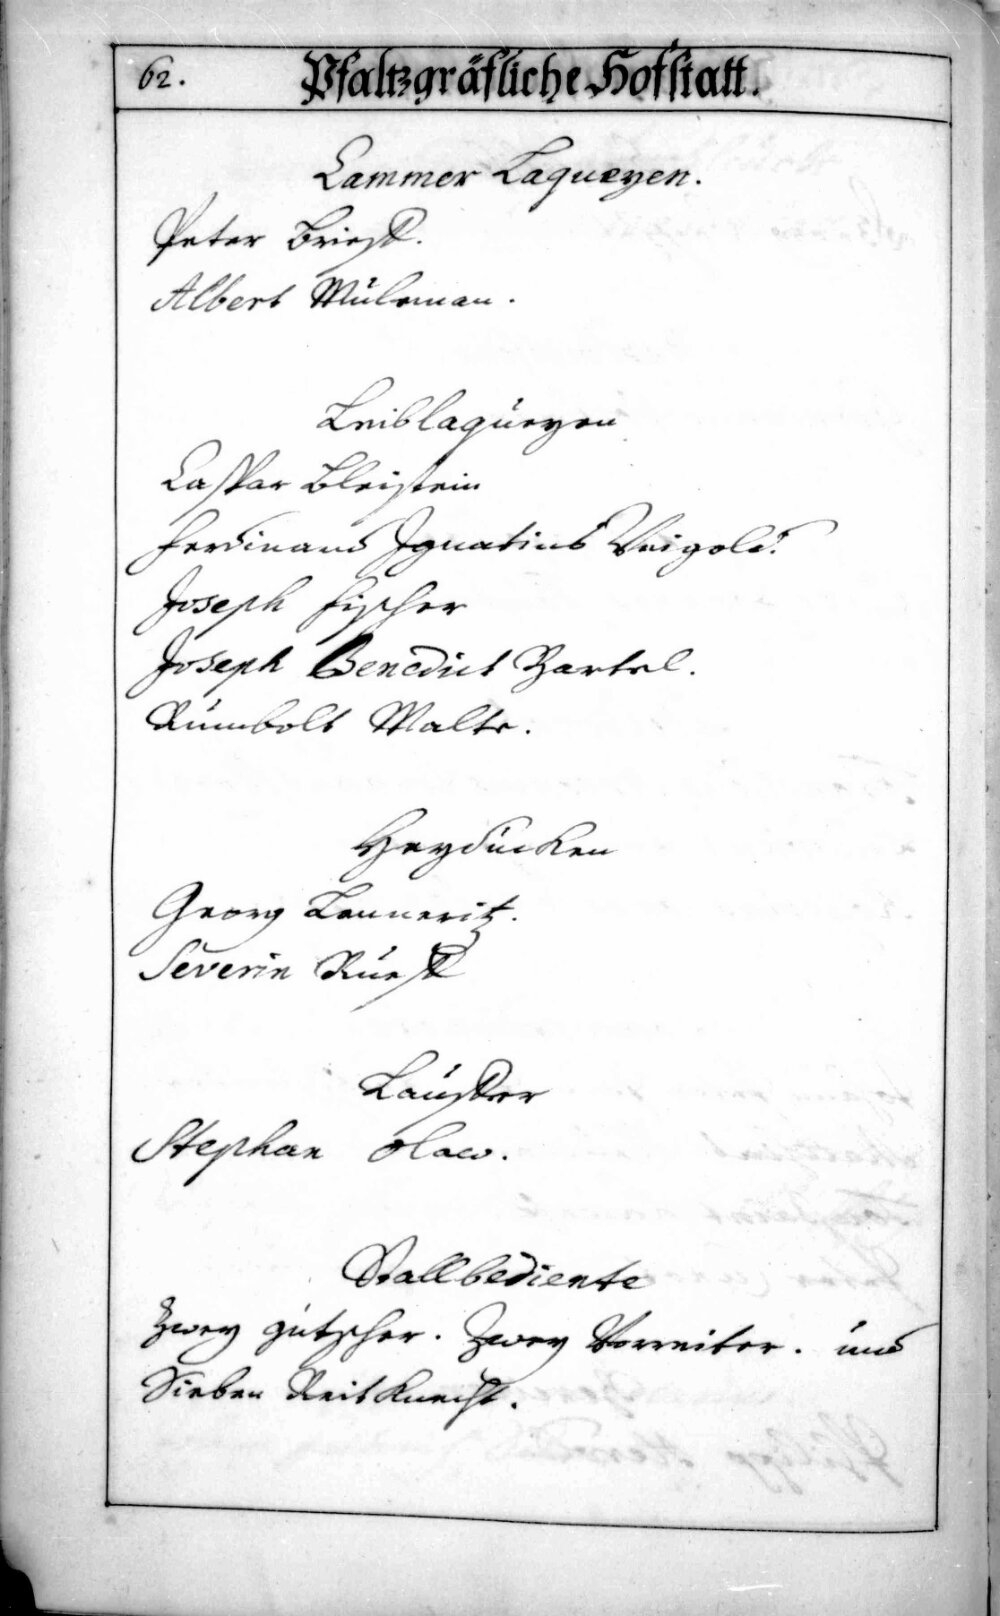 62. Pfaltzgräfliche Hofstatt.
Cammer Laqueyen.
Peter Briest.
Albert Müleman.
Leiblaqueyen
Caspar Bleistein
Ferdinand Ignatius Veigold.
Joseph Fischer
Joseph Benedict Bartel.
Rumbolt Walte.
Heyducken
Georg Lenneritz.
Severin Rüest
Läuffer
Stephan Olaw.
Stallbediente
Zwey gutscher. Zwey Vorreiter. und
Sieben Reitknecht.